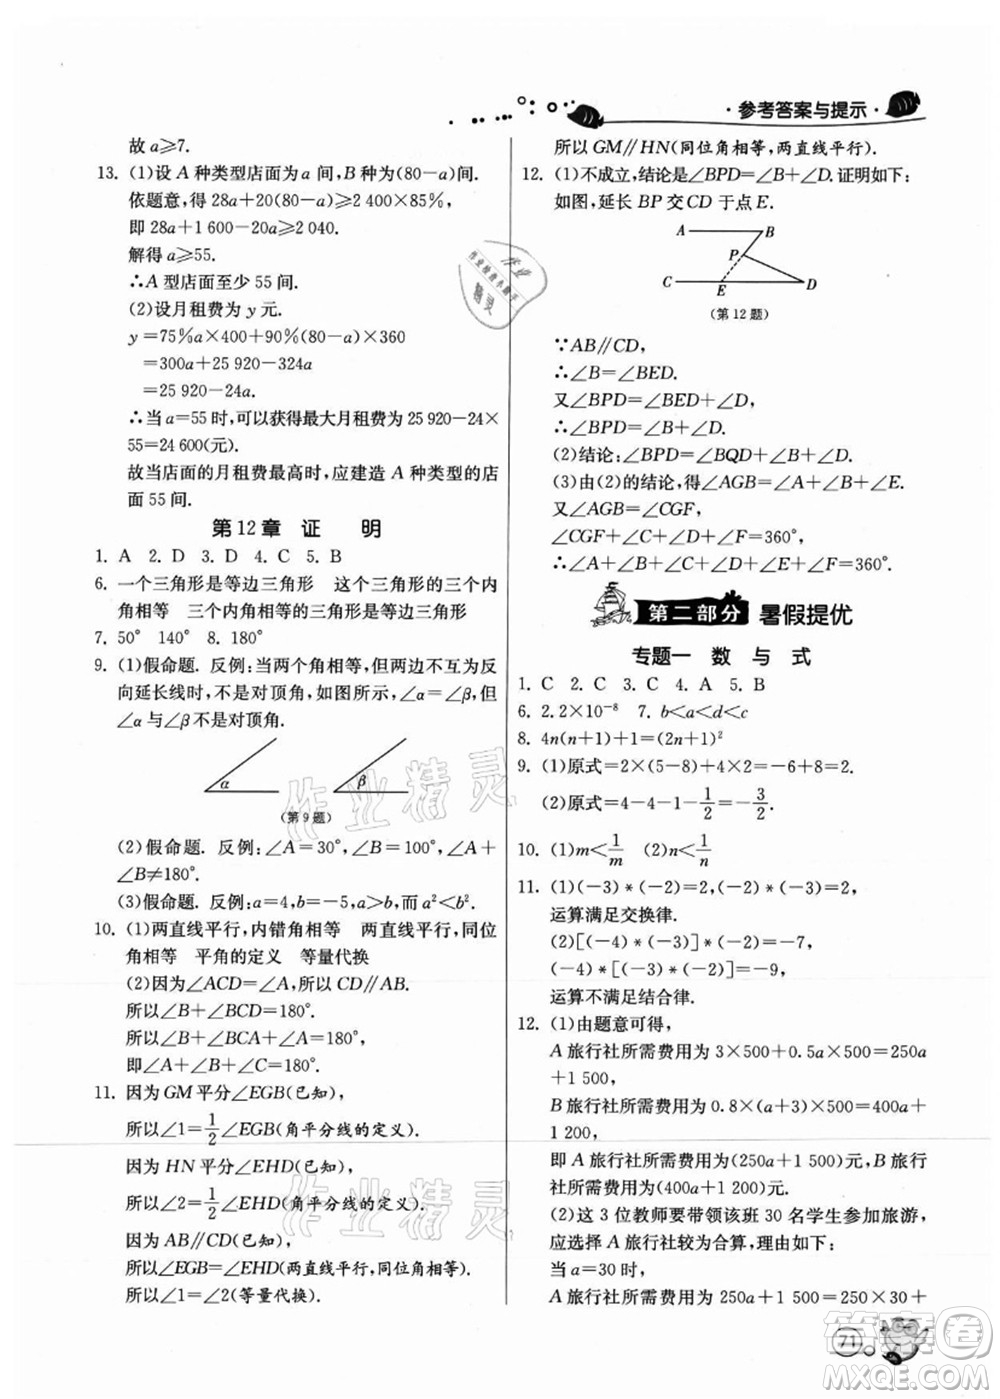 ·参考答案与提示·
故 a≥7.
13. (1)设 A 种类型店面为 a 间,B 种为(80-a)间.
依题意,得 28a+20(80-a)≥2 400×85%,
即 28a+1 600-20a≥2 040.
解得 a≥55.
∴A 型店面至少 55 间.
(2)设月租费为 y 元.
y=75%a×400+90%(80-a)×360
=300a+25 920-324a
=25 920-24a.
∴当 a=55 时,可以获得最大月租费为 25 920-24×
55=24 600(元).
故当店面的月租费最高时,应建造 A 种类型的店
面 55 间.
第 12 章 证 明
1. A 2. D 3. D 4. C 5. B
6. 一个三角形是等边三角形 这个三角形的三个内
角相等 三个内角相等的三角形是等边三角形
7. 50° 140° 8. 180°
9. (1)假命题. 反例:当两个角相等,但两边不互为反
向延长线时,如图所示,满足∠α=∠β,但
∠α与∠β不是对顶角.
α β
(第 9 题)
(2)假命题. 反例:∠A=30°,∠B=30°,∠A+
∠B≠180°.
(3)假命题. 反例:a=4,b=-5,a>b,而 a²<b².
10. (1)两直线平行,内错角相等 两直线平行,同位
角相等 平角的定义 等量代换
(2)因为∠ACD=∠A,所以 CD∥AB.
所以∠B+∠BCD=180°.
所以∠B+∠BCA+∠A=180°,
即∠A+∠B+∠C=180°.
11. 因为 GM 平分∠EGB(已知),
所以∠1=1/2∠EGB(角平分线的定义).
因为 HN 平分∠EHD(已知),
所以∠2=1/2∠EHD(角平分线的定义).
因为 AB∥CD(已知),
所以∠EGB=∠EHD(两直线平行,同位角相等).
所以∠1=∠2(等量代换).
所以 GM∥HN(同位角相等,两直线平行).
12. (1)不成立,结论是∠BPD=∠B+∠D.证明如下:
如图,延长 BP 交 CD 于点 E.
A B
P
C E D
(第 12 题)
∵AB∥CD,
∴∠B=∠BED.
又∠BPD=∠BED+∠D,
∴∠BPD=∠B+∠D.
(2)结论:∠BPD=∠BQD+∠B+∠D.
(3)由(2)的结论,得∠AGB=∠A+∠B+∠E.
又∠AGB=∠CGF,
∠CGF+∠C+∠D+∠F=360°,
∴∠A+∠B+∠C+∠D+∠E+∠F=360°.
第二部分 暑假提优
专题一 数 与 式
1. C 2. C 3. C 4. A 5. B
6. 2.2×10⁻⁸ 7. b<a<d<c
8. 4n(n+1)+1=(2n+1)²
9. (1)原式=2×(5-8)+4×2=-6+8=2.
(2)原式=4-4-1-1/2=-3/2.
10. (1)m<1/m (2)n<1/n
11. (1)(-3)*(-2)=2,(-2)*(-3)=2,
运算满足交换律.
(2)[(-4)*(-3)]*(-2)=-7,
(-4)*[(-3)*(-2)]=-9,
运算不满足结合律.
12. (1)由题意可得,
A 旅行社所需费用为 3×500+0.5a×500=250a
+1 500,
B 旅行社所需费用为 0.8×(a+3)×500=400a+
1 200,
即 A 旅行社所需费用为(250a+1 500)元,B 旅行
社所需费用为(400a+1 200)元.
(2)这 3 位教师要带领该班 30 名学生参加旅游,
应选择 A 旅行社较为合算,理由如下:
当 a=30 时,
A 旅行社所需费用为 250a+1 500=250×30+
71
作业精灵
作业精灵
答案圈
MXQE.COM